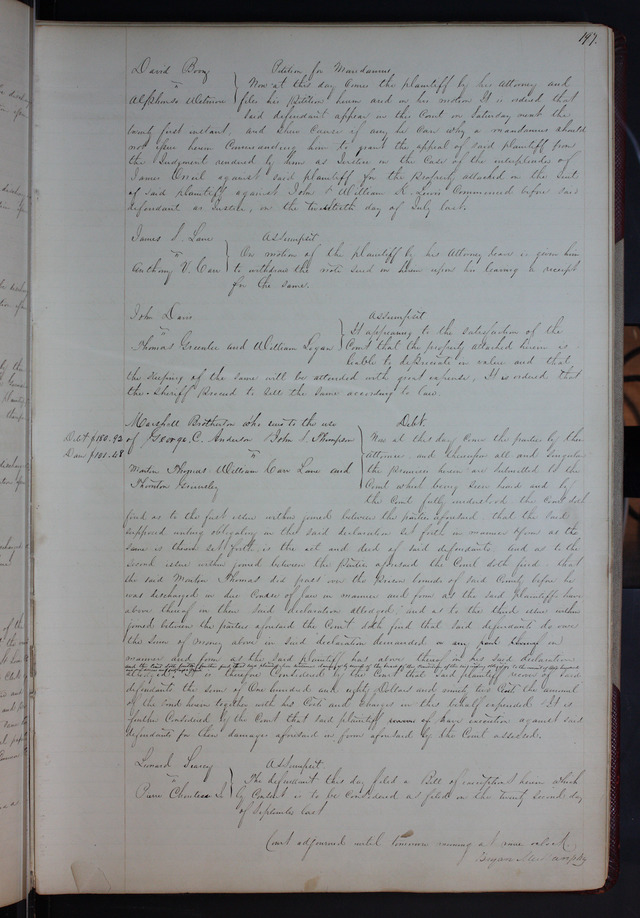 197.
David Boon Petition for Mandamus.
vs Now at this day Comes the plaintiff by his Attorney and
Alphonso Wetmore files his Petition herein and on his motion It is ordered that
Said defendant appear in this Court on Saturday next the
twenty first instant, and shew Cause if any he Can why a mandamus should
not issue herein Commanding him to grant the appeal of said plaintiff from
the Judgment rendered by him as Justice in the Case of the interpleader of
James Oneil against said plaintiff for the property attached in the suit
of said plaintiff against John & William Commenced before said
defendant as Justice, on the twentieth day of July last.
James S. Lane Assumpsit
vs On motion of the plaintiff by his Attorney leave is given him
Anthony V. Carr to withdraw the note sued on herein upon his leaving a receipt
for the same.
John Davis Assumpsit
vs It appearing to the satisfaction of the
Thomas Greenlee and William Logan Court that the property attached herein is
liable to depreciate in value and that
the keeping of the same will be attended with great expense, It is ordered that
the Sheriff proceed to sell the same according to law.
Marshall Brotherton who sues to the use Debt.
Debt $180.92 of George C. Anderson John S. Thompson Now at this day Come the parties by their
Dam $101.48 vs Attornies, and thereupon all and Singular
Morton Thomas William Carr Lane and the premises herein are submitted to the
Thornton Grimsley Court which being seen heard and by
the Court fully understood, the Court doth
find as to the first issue within joined between the parties aforesaid, that the said
supposed writing obligatory in the said declaration set forth in manner & form as the
same is therein set forth, is the act and deed of said defendants. And as to the
second issue within joined between the parties aforesaid the Court doth find, that
the said Morton Thomas did pass over the Prison bounds of said County before he
was discharged in due Course of law in manner and form as the said Plaintiff have
above thereof in their said declaration alledged; and as to the third issue within
joined between the parties aforesaid the Court doth find that said defendants do owe
the sum of money above in said declaration demanded in
manner and form as the said plaintiff has above thereof in his said declaration
alledged. It is therefore Considered by the Court that said plaintiff recover of said
defendants the sum of One hundred and eighty Dollars and ninety two Cents the amount
of the together with his Costs and Charges in this behalf expended. It is
further Considered by the Court that said plaintiff have execution against said
defendants for their damages aforesaid in form aforesaid by the Court assessed.
Leonard Searcy Assumpsit
vs The defendant this day filed a Bill of exceptions herein which
Pierre Chouteau Jr by Consent is to be Considered as filed on the twenty second day
of September last
Court adjourned until tomorrow morning at nine oclock
Bryan Mullanphy